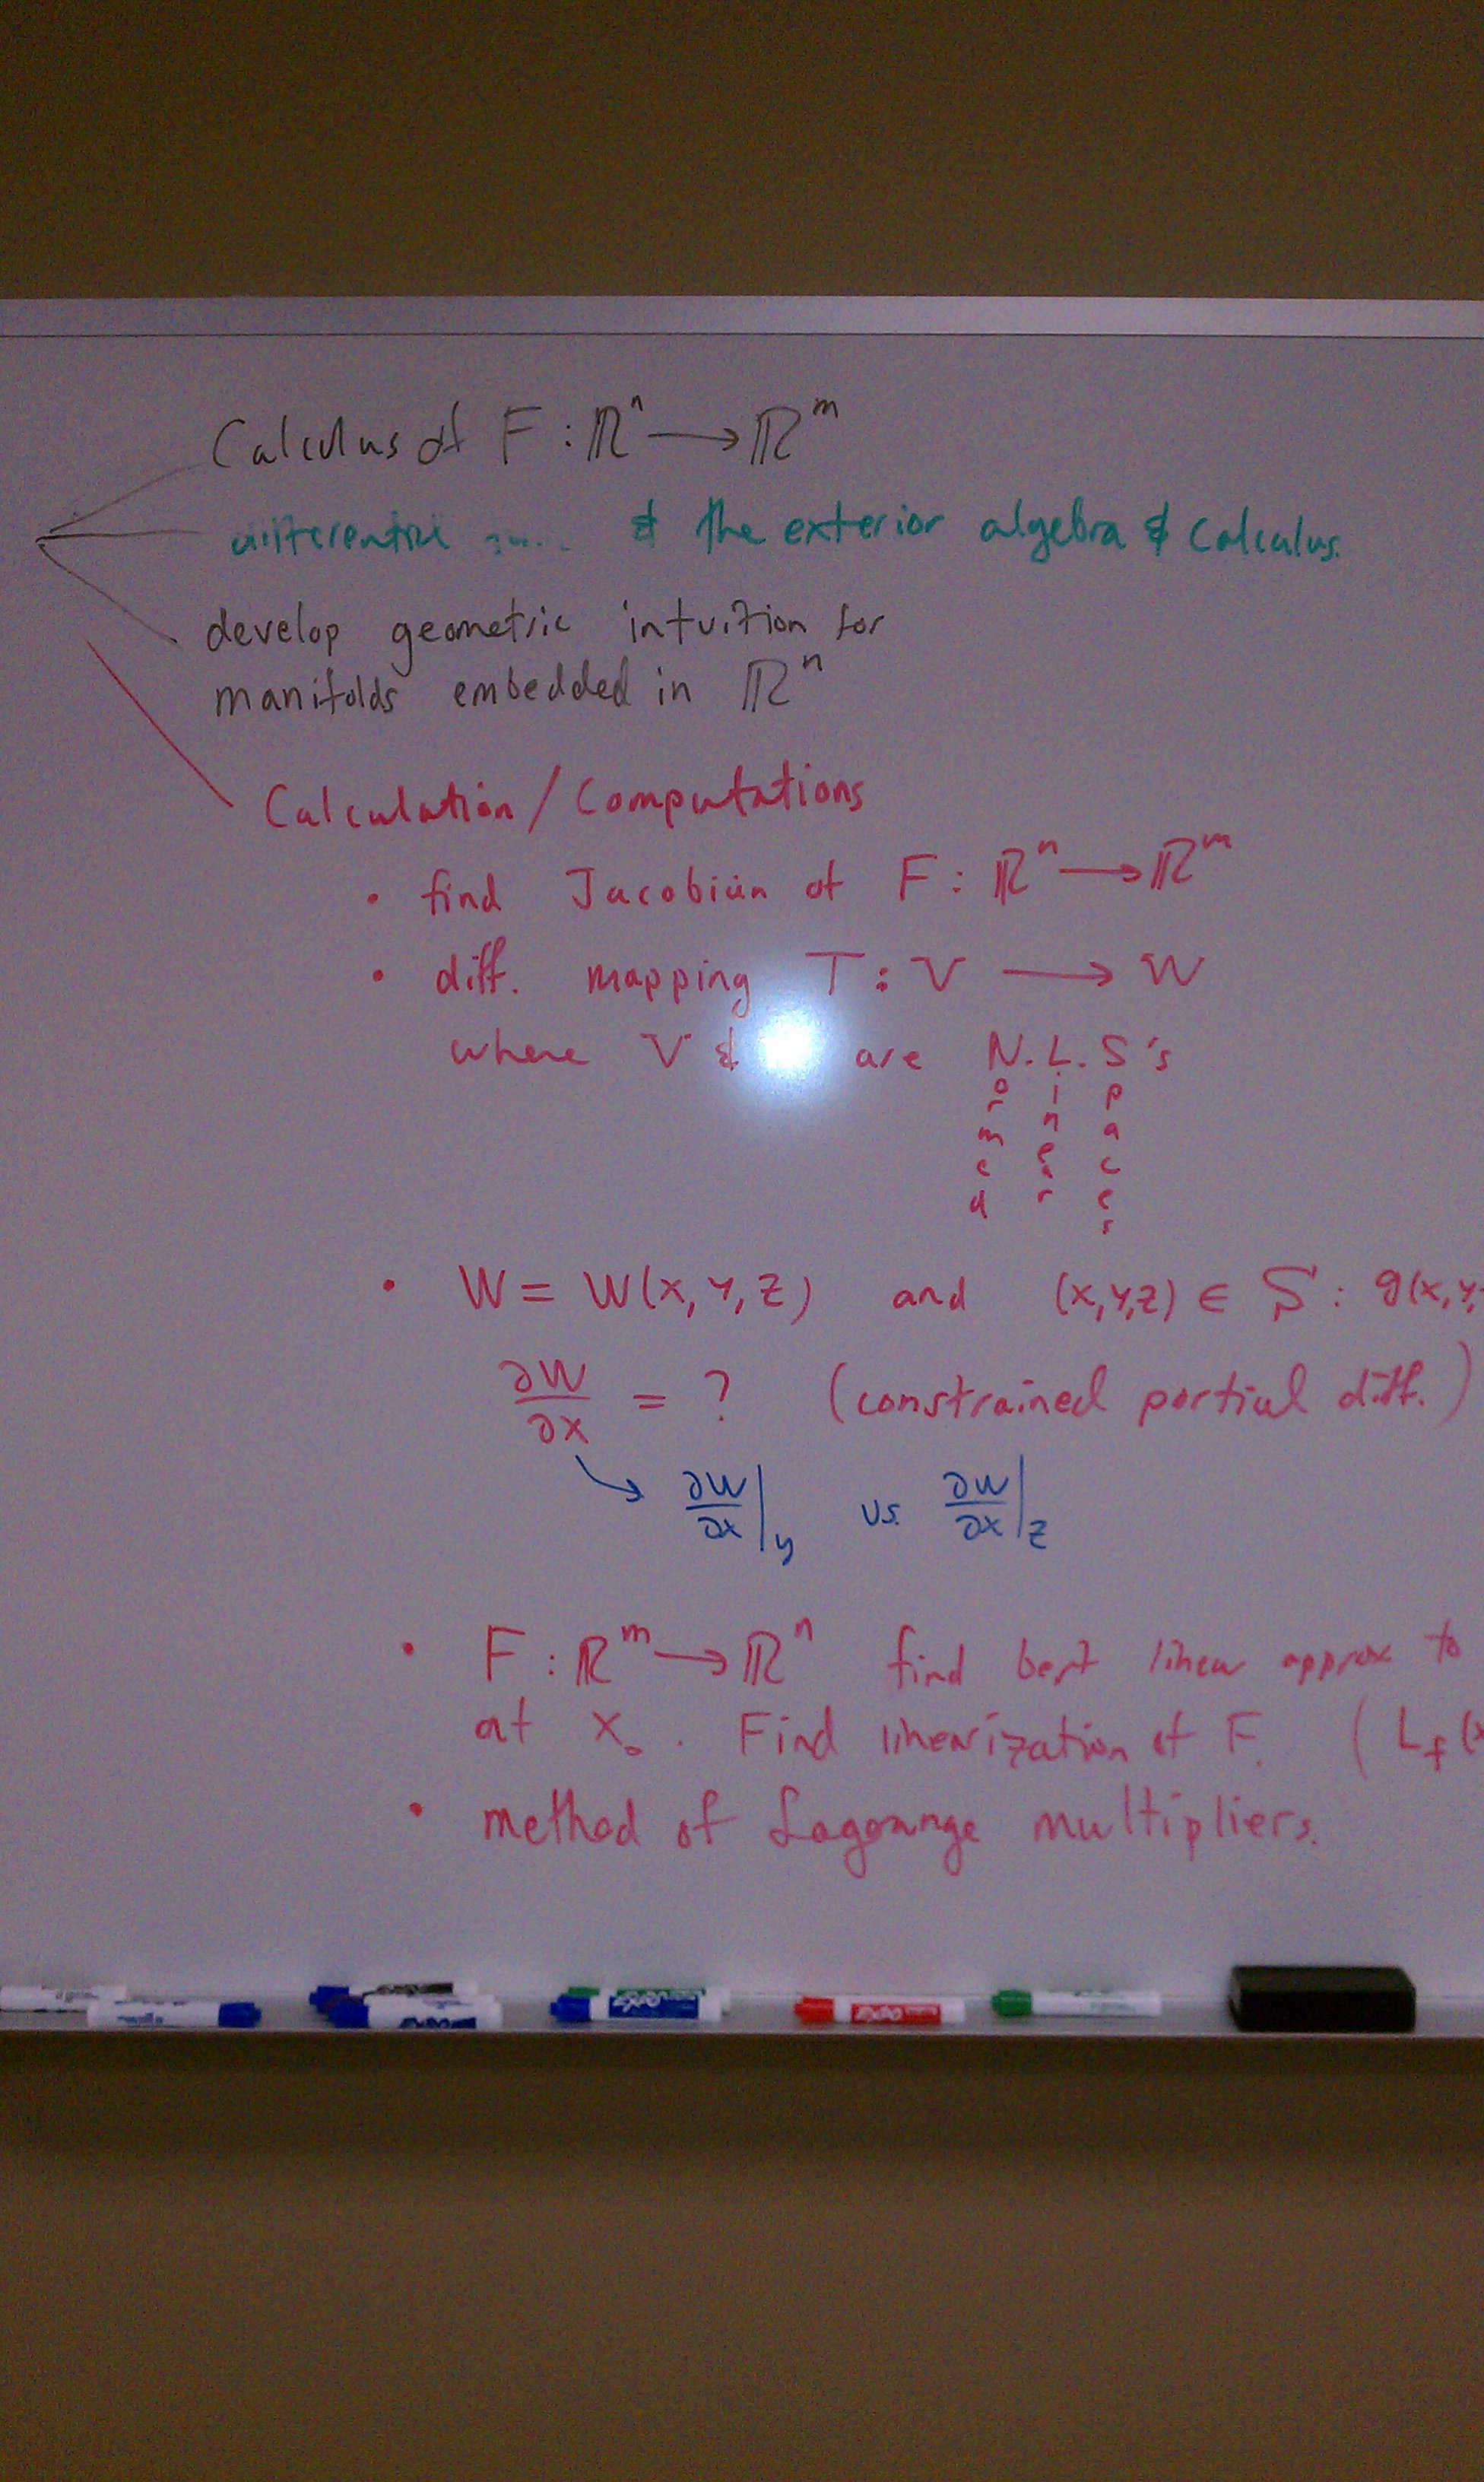 Calculus of F : ℝⁿ → ℝᵐ
differential & the exterior algebra & calculus.
develop geometric intuition for
manifolds embedded in ℝⁿ
Calculation / Computations
• find Jacobian of F : ℝⁿ → ℝᵐ
• diff. mapping T : V → W
where V & are N.L.S's
Normed Linear Spaces
• W = W(x, y, z) and (x, y, z) ∈ S : g(x, y,
∂W/∂x = ? (constrained partial diff.)
∂W/∂x |y vs. ∂W/∂x |z
• F : ℝᵐ → ℝⁿ find best linear approx to
at x₀. Find linearization of F. (L_f(x
• method of Lagrange multipliers.
EXPO